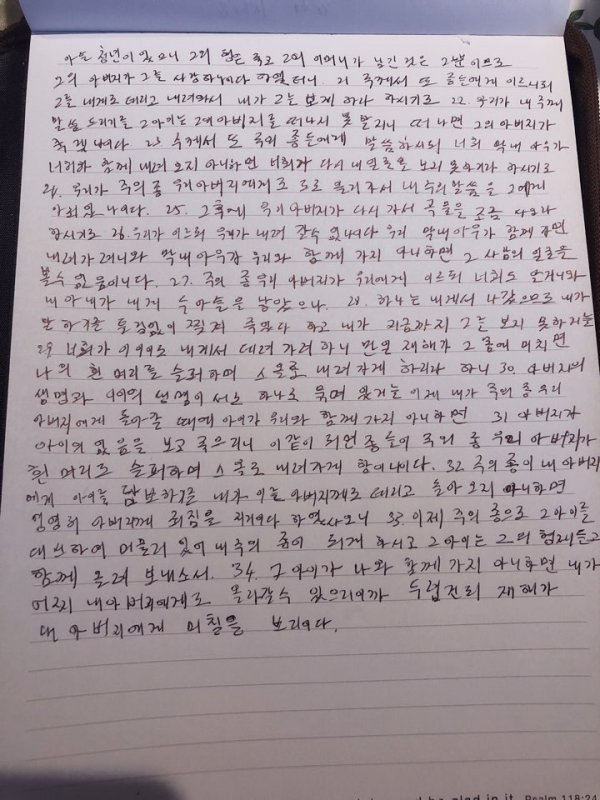 아들 청년이 있으니 그의 형은 죽고 그의 어머니가 남긴 것은 그뿐이므로
그의 아버지가 그를 사랑하나이다 하였더니. 21 주께서 또 종들에게 이르시되
그를 내게로 데리고 내려와서 내가 그를 보게 하라 하시기로 22. 우리가 내 주께
말씀 드리기를 그 아이는 그의 아버지를 떠나지 못할지니 떠나면 그의 아버지가
죽겠나이다 23 주께서 또 주의 종들에게 말씀하시되 너희 막내 아우가
너희와 함께 내려 오지 아니하면 너희가 다시 내 얼굴을 보지 못하리라 하시기로
24. 우리가 주의 종 우리 아버지에게로 도로 올라가서 내 주의 말씀을 그에게
아뢰었나이다. 25. 그 후에 우리 아버지가 다시 가서 곡물을 조금 사오라
하시기로 26. 우리가 이르되 우리가 내려 갈수 없나이다 우리 막내 아우가 함께 가면
내려가려니와 막내 아우가 우리와 함께 가지 아니하면 그 사람의 얼굴을
볼수 없음이니다. 27. 주의 종 우리 아버지가 우리에게 이르되 너희도 알거니와
내 아내가 내게 두 아들을 낳았으나. 28. 하나는 내게서 나갔으므로 내가
말하기를 틀림없이 찢겨 죽었다 하고 내가 지금까지 그를 보지 못하거늘
29 너희가 이 아이도 내게서 데려 가려하니 만일 재해가 그 몸에 미치면
나의 흰 머리를 슬퍼하며 스올로 내려가게 하리라 하니 30. 아버지의
생명과 아이의 생명이 서로 하나로 묶여 있거늘 이제 내가 주의 종 우리
아버지에게 돌아갈 때에 아이가 우리와 함께 가지 아니하면 31 아버지가
아이의 없음을 보고 죽으리니 이같이 되면 종들이 주의 종 우리 아버지가
흰 머리로 슬퍼하며 스올로 내려가게 함이니이다. 32 주의 종이 내 아버지
에게 아이를 담보하기를 내가 이를 아버지께로 데리고 돌아 오지 아니하면
영영히 아버지께 죄짐을 지리이다 하였사오니 33. 이제 주의 종으로 그 아이를
대신하여 머물러 있어 내 주의 종이 되게 하시고 그 아이는 그의 형제들과
함께 올려 보내소서. 34. 그 아이가 나와 함께 가지 아니하면 내가
어찌 내 아버지에게로 올라갈수 있으리이까 두렵건대 재해가
내 아버지에게 미칠을 보리이다.
be glad in it. Psalm 118:24